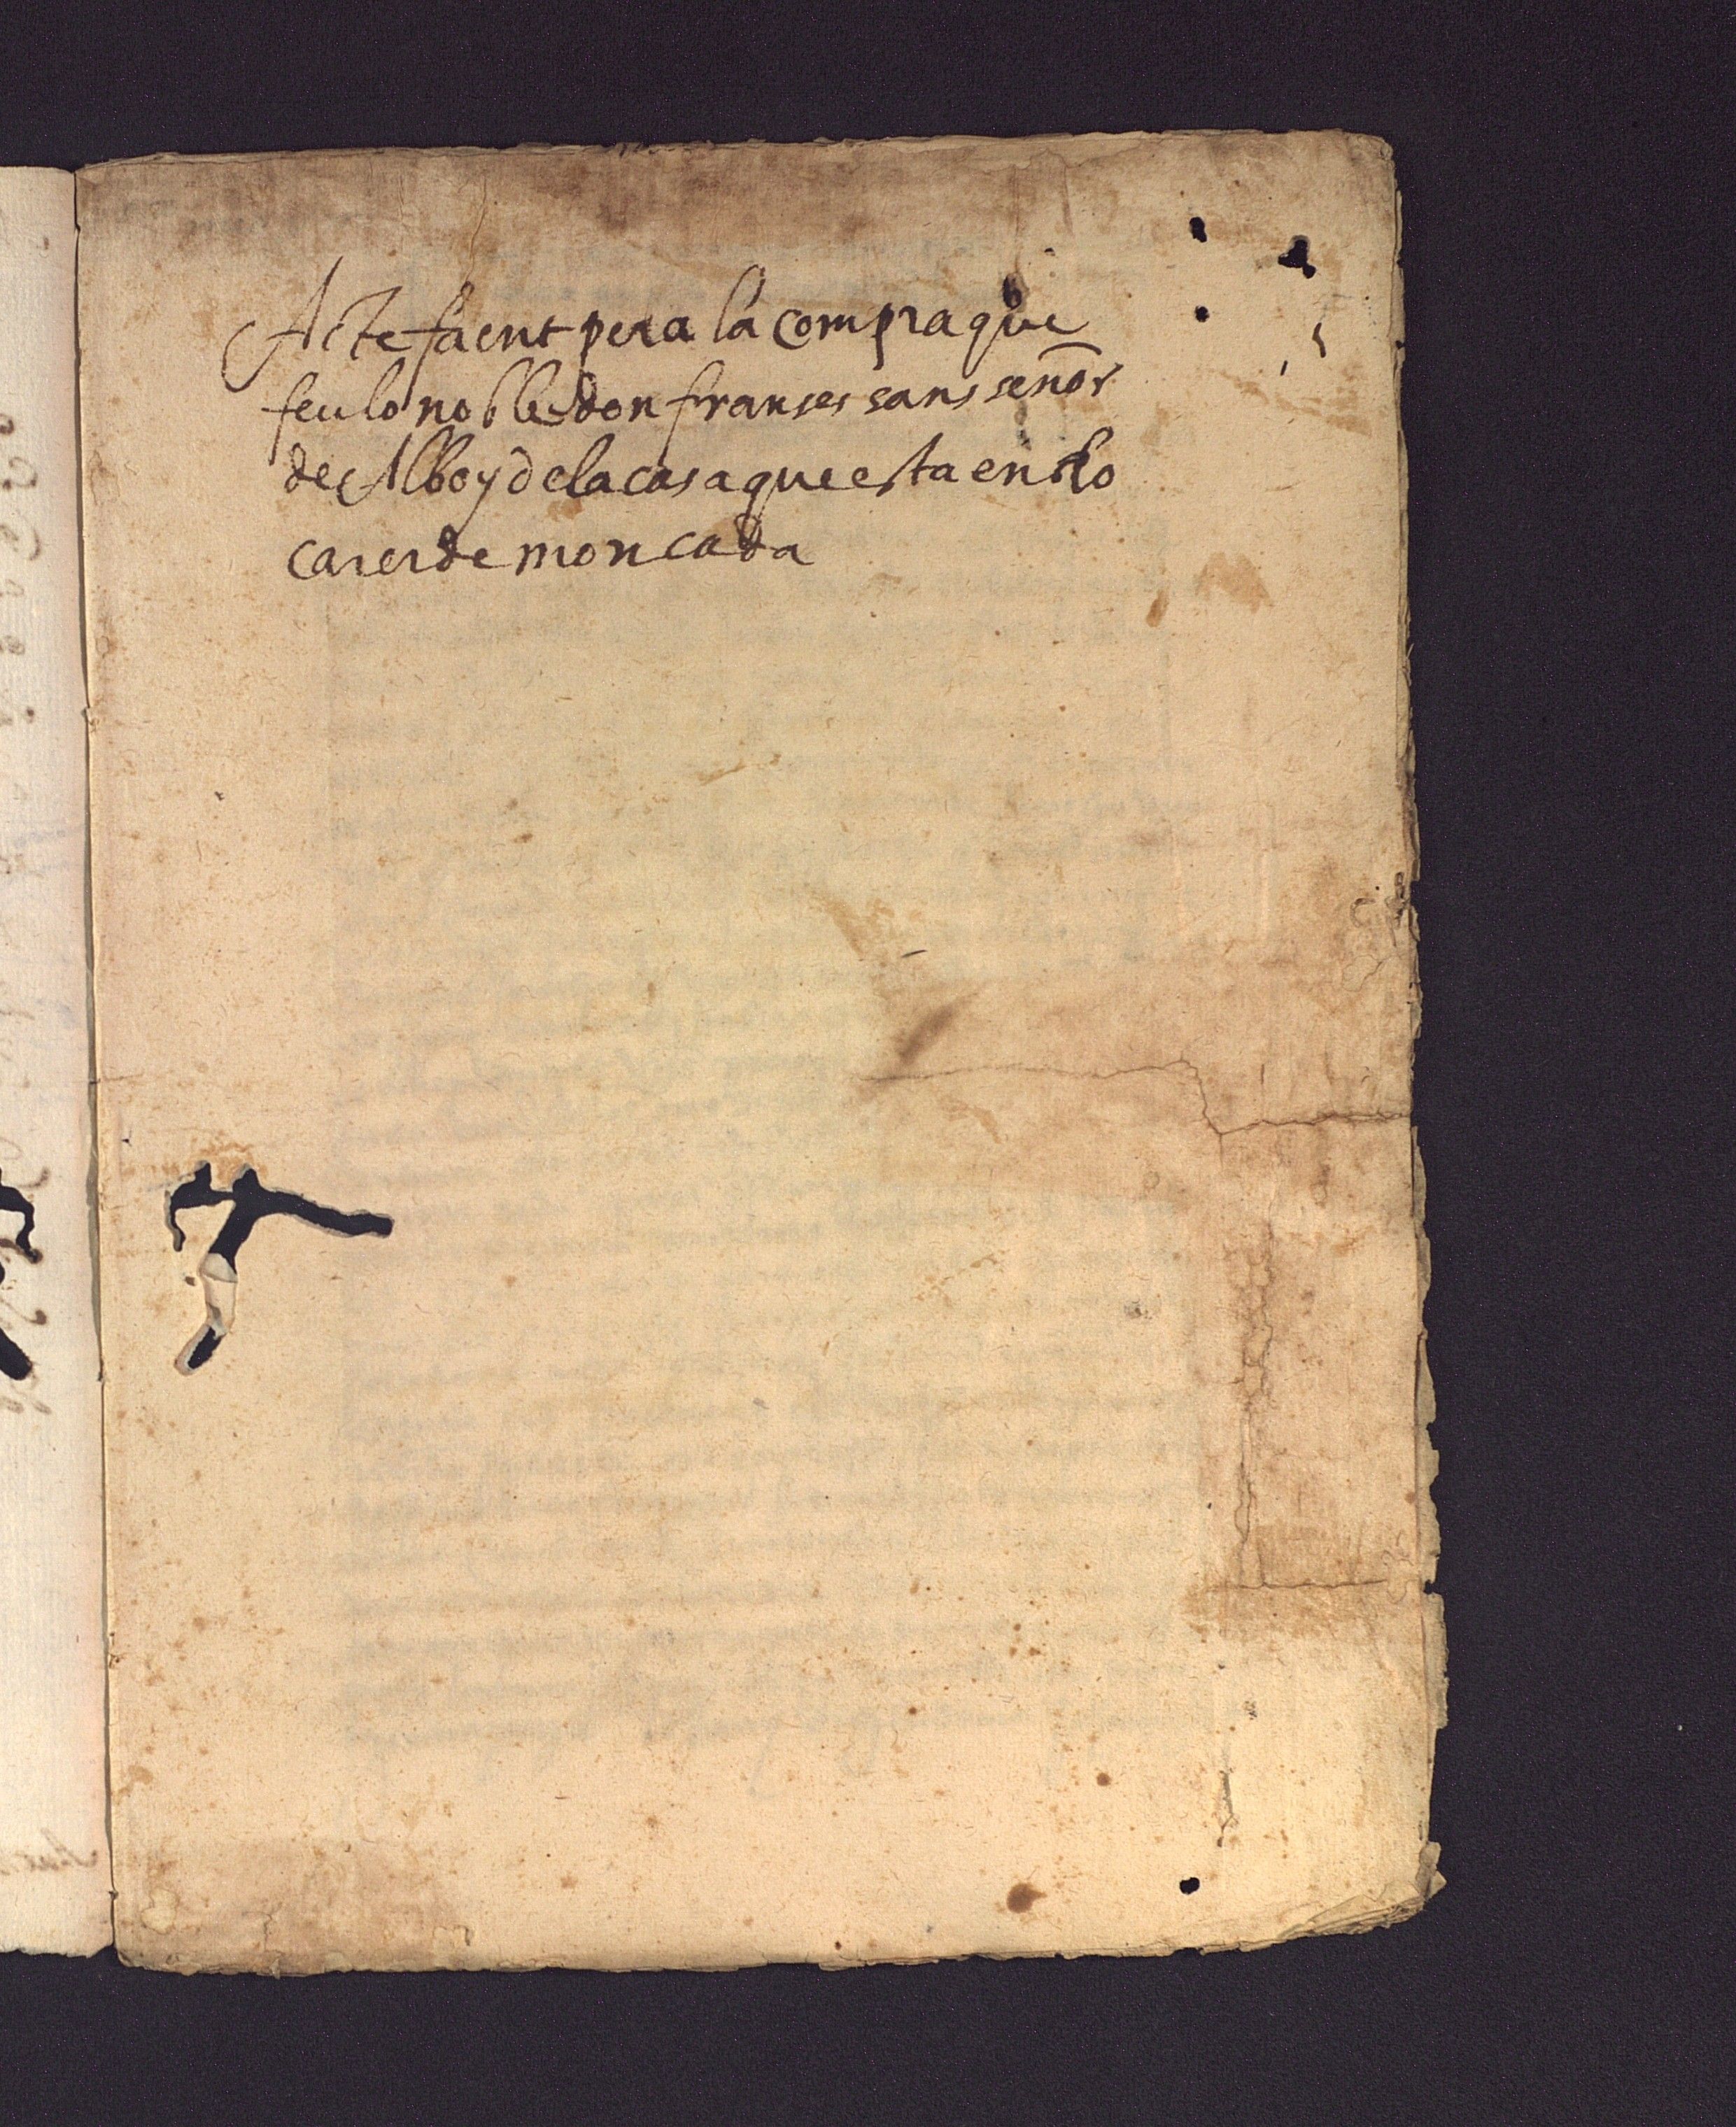 Acte faent pera la compra que
feu lo noble don franses sans señor
de Alboy de la casa que esta en lo
carer de moncada